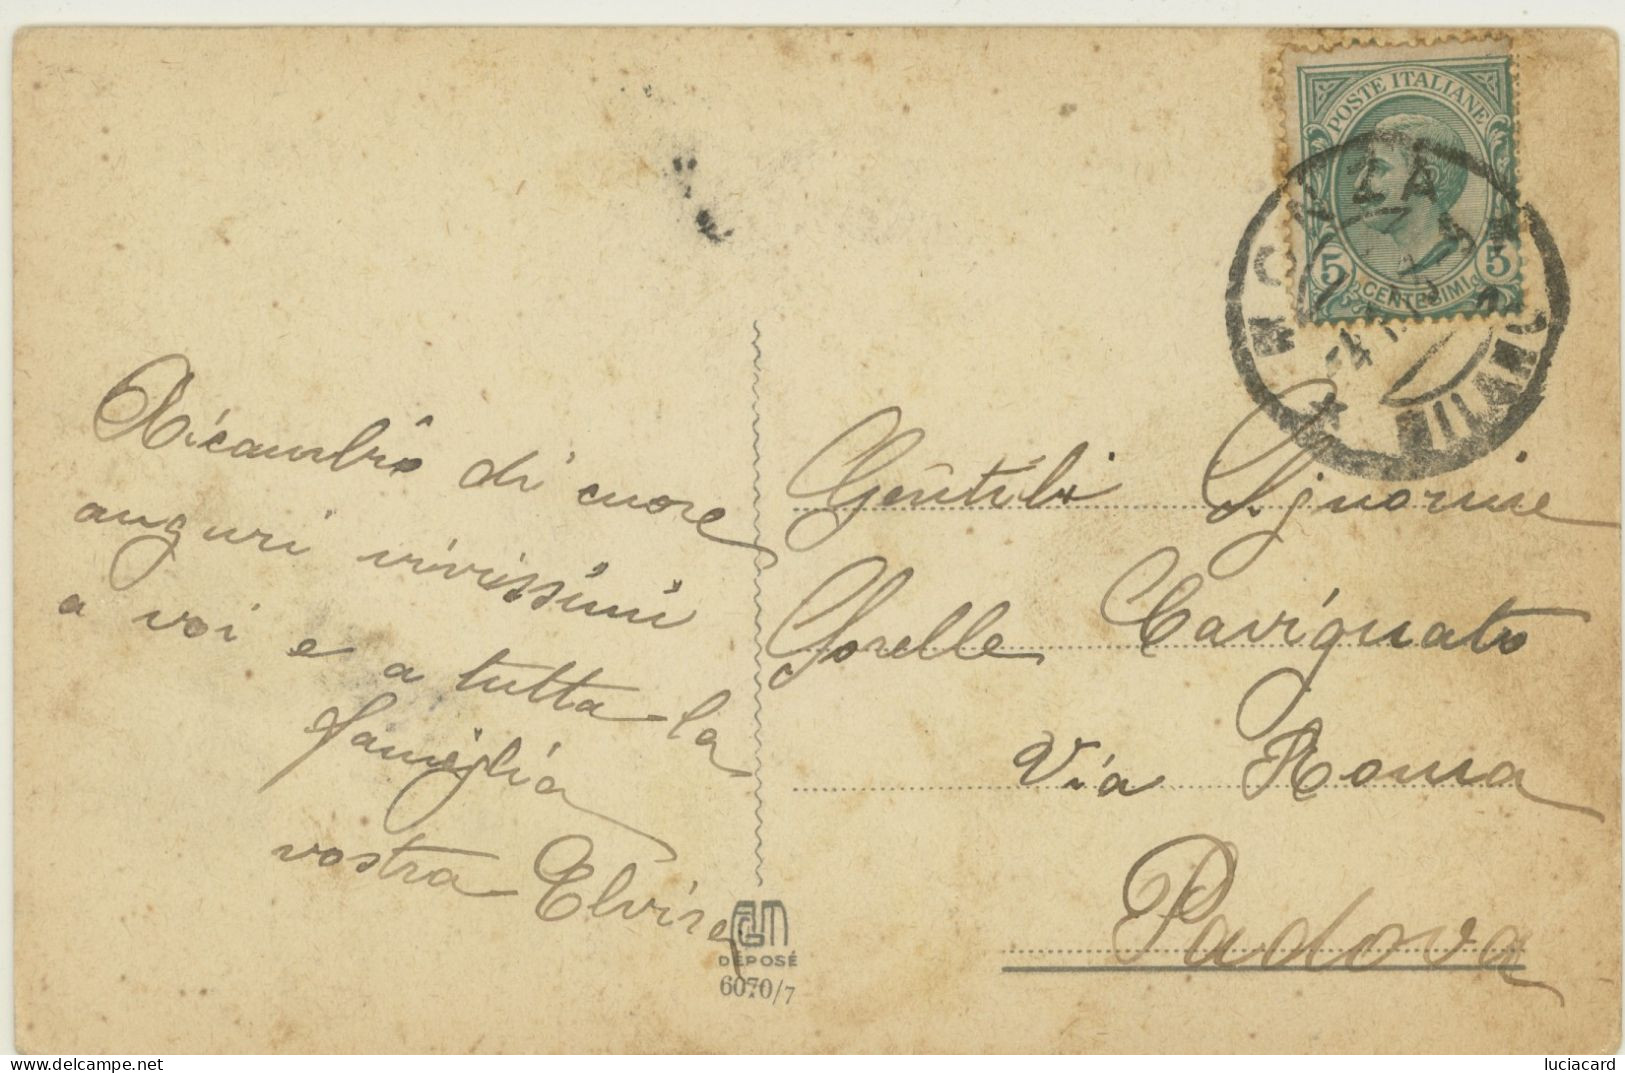 Ricambio di cuore
auguri vivissimi
a voi e a tutta la
famiglia
vostra Elvira
Gentili Signorine
Sorelle Cavignato
Via Roma
Padova
POSTE ITALIANE
5 CENTESIMI 5
MONZA
MILANO
DÉPOSÉ
6070/7
www.delcampe.net
luciacard